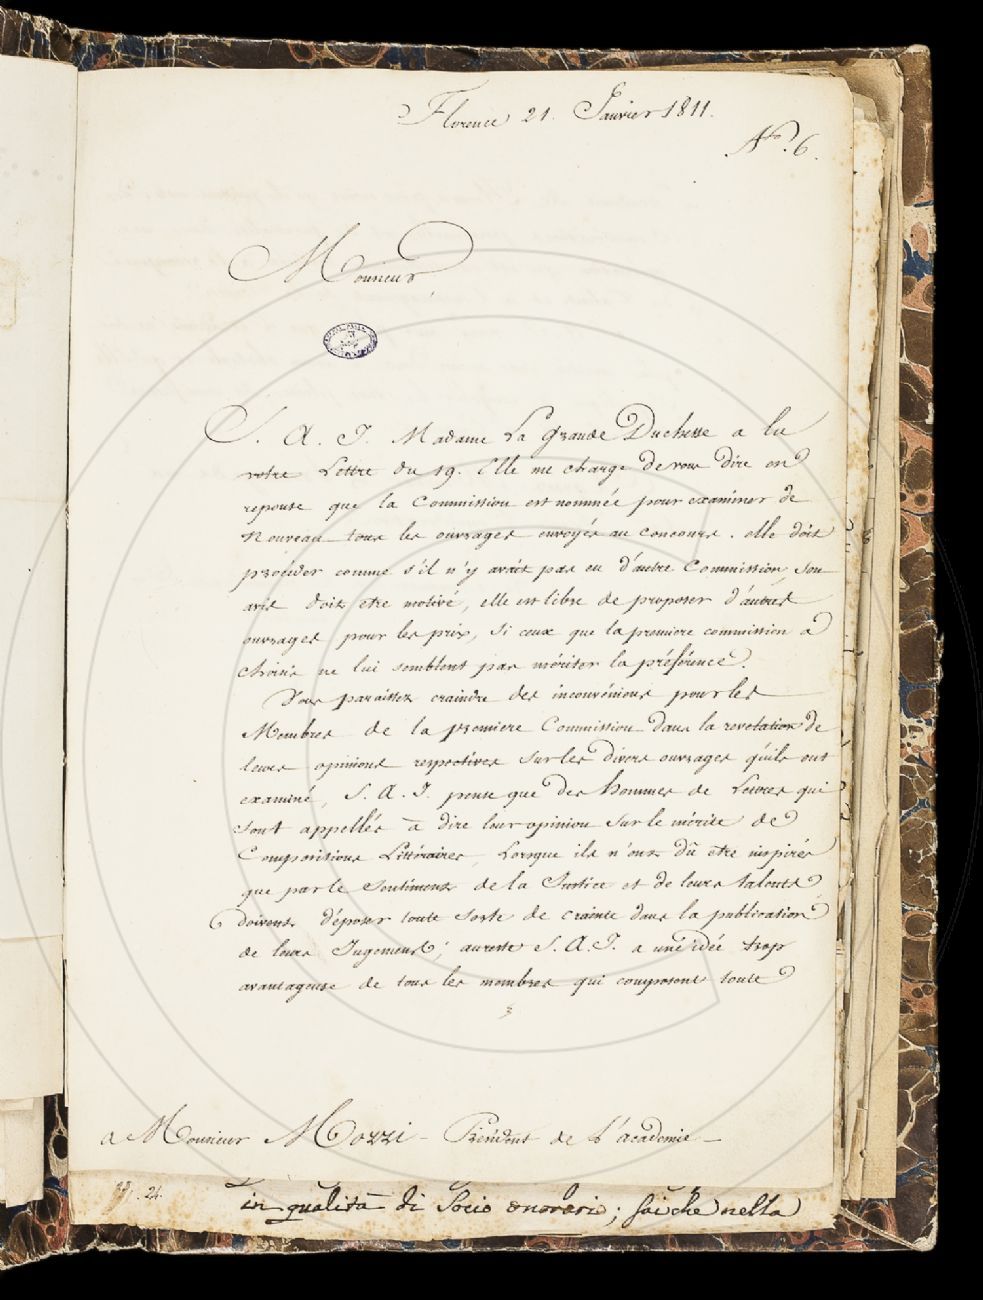 Florence 21. Janvier 1811.
N.o 6.
Monsieur
S. A. I. Madame La Grande Duchesse a lu
votre Lettre du 19. Elle me charge de vous dire en
reponse que la Commission est nommée pour examiner de
Nouveau tous les ouvrages envoyés au concours. elle doit
proceder comme s'il n'y avait pas eu d'autre Commission, Son
avis doit etre motivé, elle est libre de proposer d'autres
ouvrages pour les prix, Si ceux que la premiere commission a
choisis ne lui semblent pas mériter la préférence.
Vous paraissez craindre des inconvéniens pour les
Membres de la premiere Commission dans la revelation de
leurs opinions respectives Sur les divers ouvrages qu'ils ont
examiné, S. A. I. pense que des hommes de Lettres qui
sont appellés à dire leur opinion Sur le mérite de
Compositions Littéraires, Lorsque ils n'ont dû etre inspirés
que par le Sentiment de la Justice et de leurs talents
doivent déposer toute sorte de crainte dans la publication
de leurs Jugemens; au reste S. A. I. a une idée trop
avantageuse de tous les membres qui composent toute
a Monsieur Mozzi - Président de L'academie -
24.
in qualità di Socio onorario; sai che nella